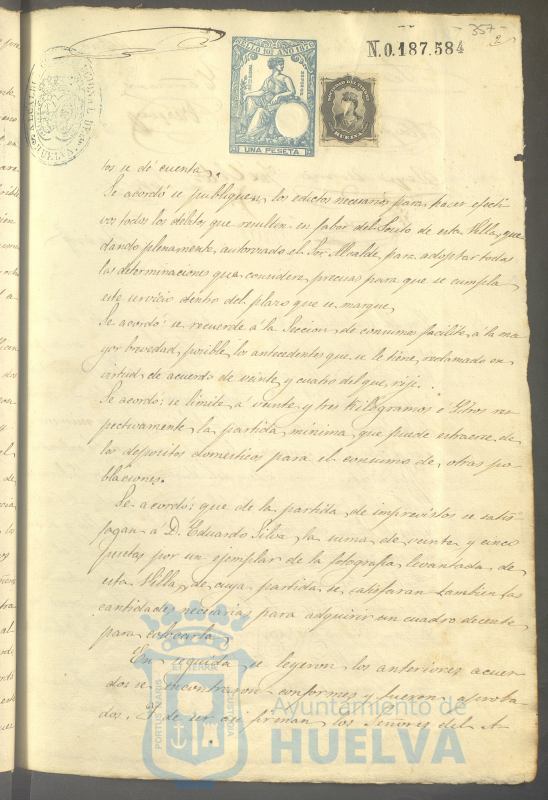 357
2
N.0.187.584
SELLO 10º AÑO 1876
UNA PESETA
tos se dé cuenta.
Se acordó se publiquen los edictos necesarios para hacer efecti
vos todos los debitos que resulten en fabor del Posito de esta Villa, que
dando plenamente autorizado el Sor Alcalde para adoptar todas
las determinaciones que considere precisas para que se cumpla
este servicio dentro del plazo que se marque.
Se acordó: se recuerde á la Seccion de consumos facilite á la ma
yor brevedad posible los antecedentes que se le tiene reclamado en
virtud de acuerdo de veinte y cuatro del que rije.
Se acordó: se limite á veinte y tres Kilogramos ó litros res
pectivamente la partida mínima que puede estraerse de
los depositos domésticos para el consumo de otras po
blaciones.
Se acordó: que de la partida de imprevistos se satis
fagan á D. Eduardo Silva la suma de veinte y cinco
pesetas por un ejemplar de la fotografia levantada de
esta Villa, de cuya partida se satisfaran tambien las
cantidades necesarias para adquirir un cuadro decente
para colocarla.
En seguida se leyeron los anteriores acuer
dos se encontraron conformes y fueron aproba
dos. Y de ser asi firman los Señores del A-
PORTUS MARIS ET TERRAE CUSTODIA
Ayuntamiento de
HUELVA